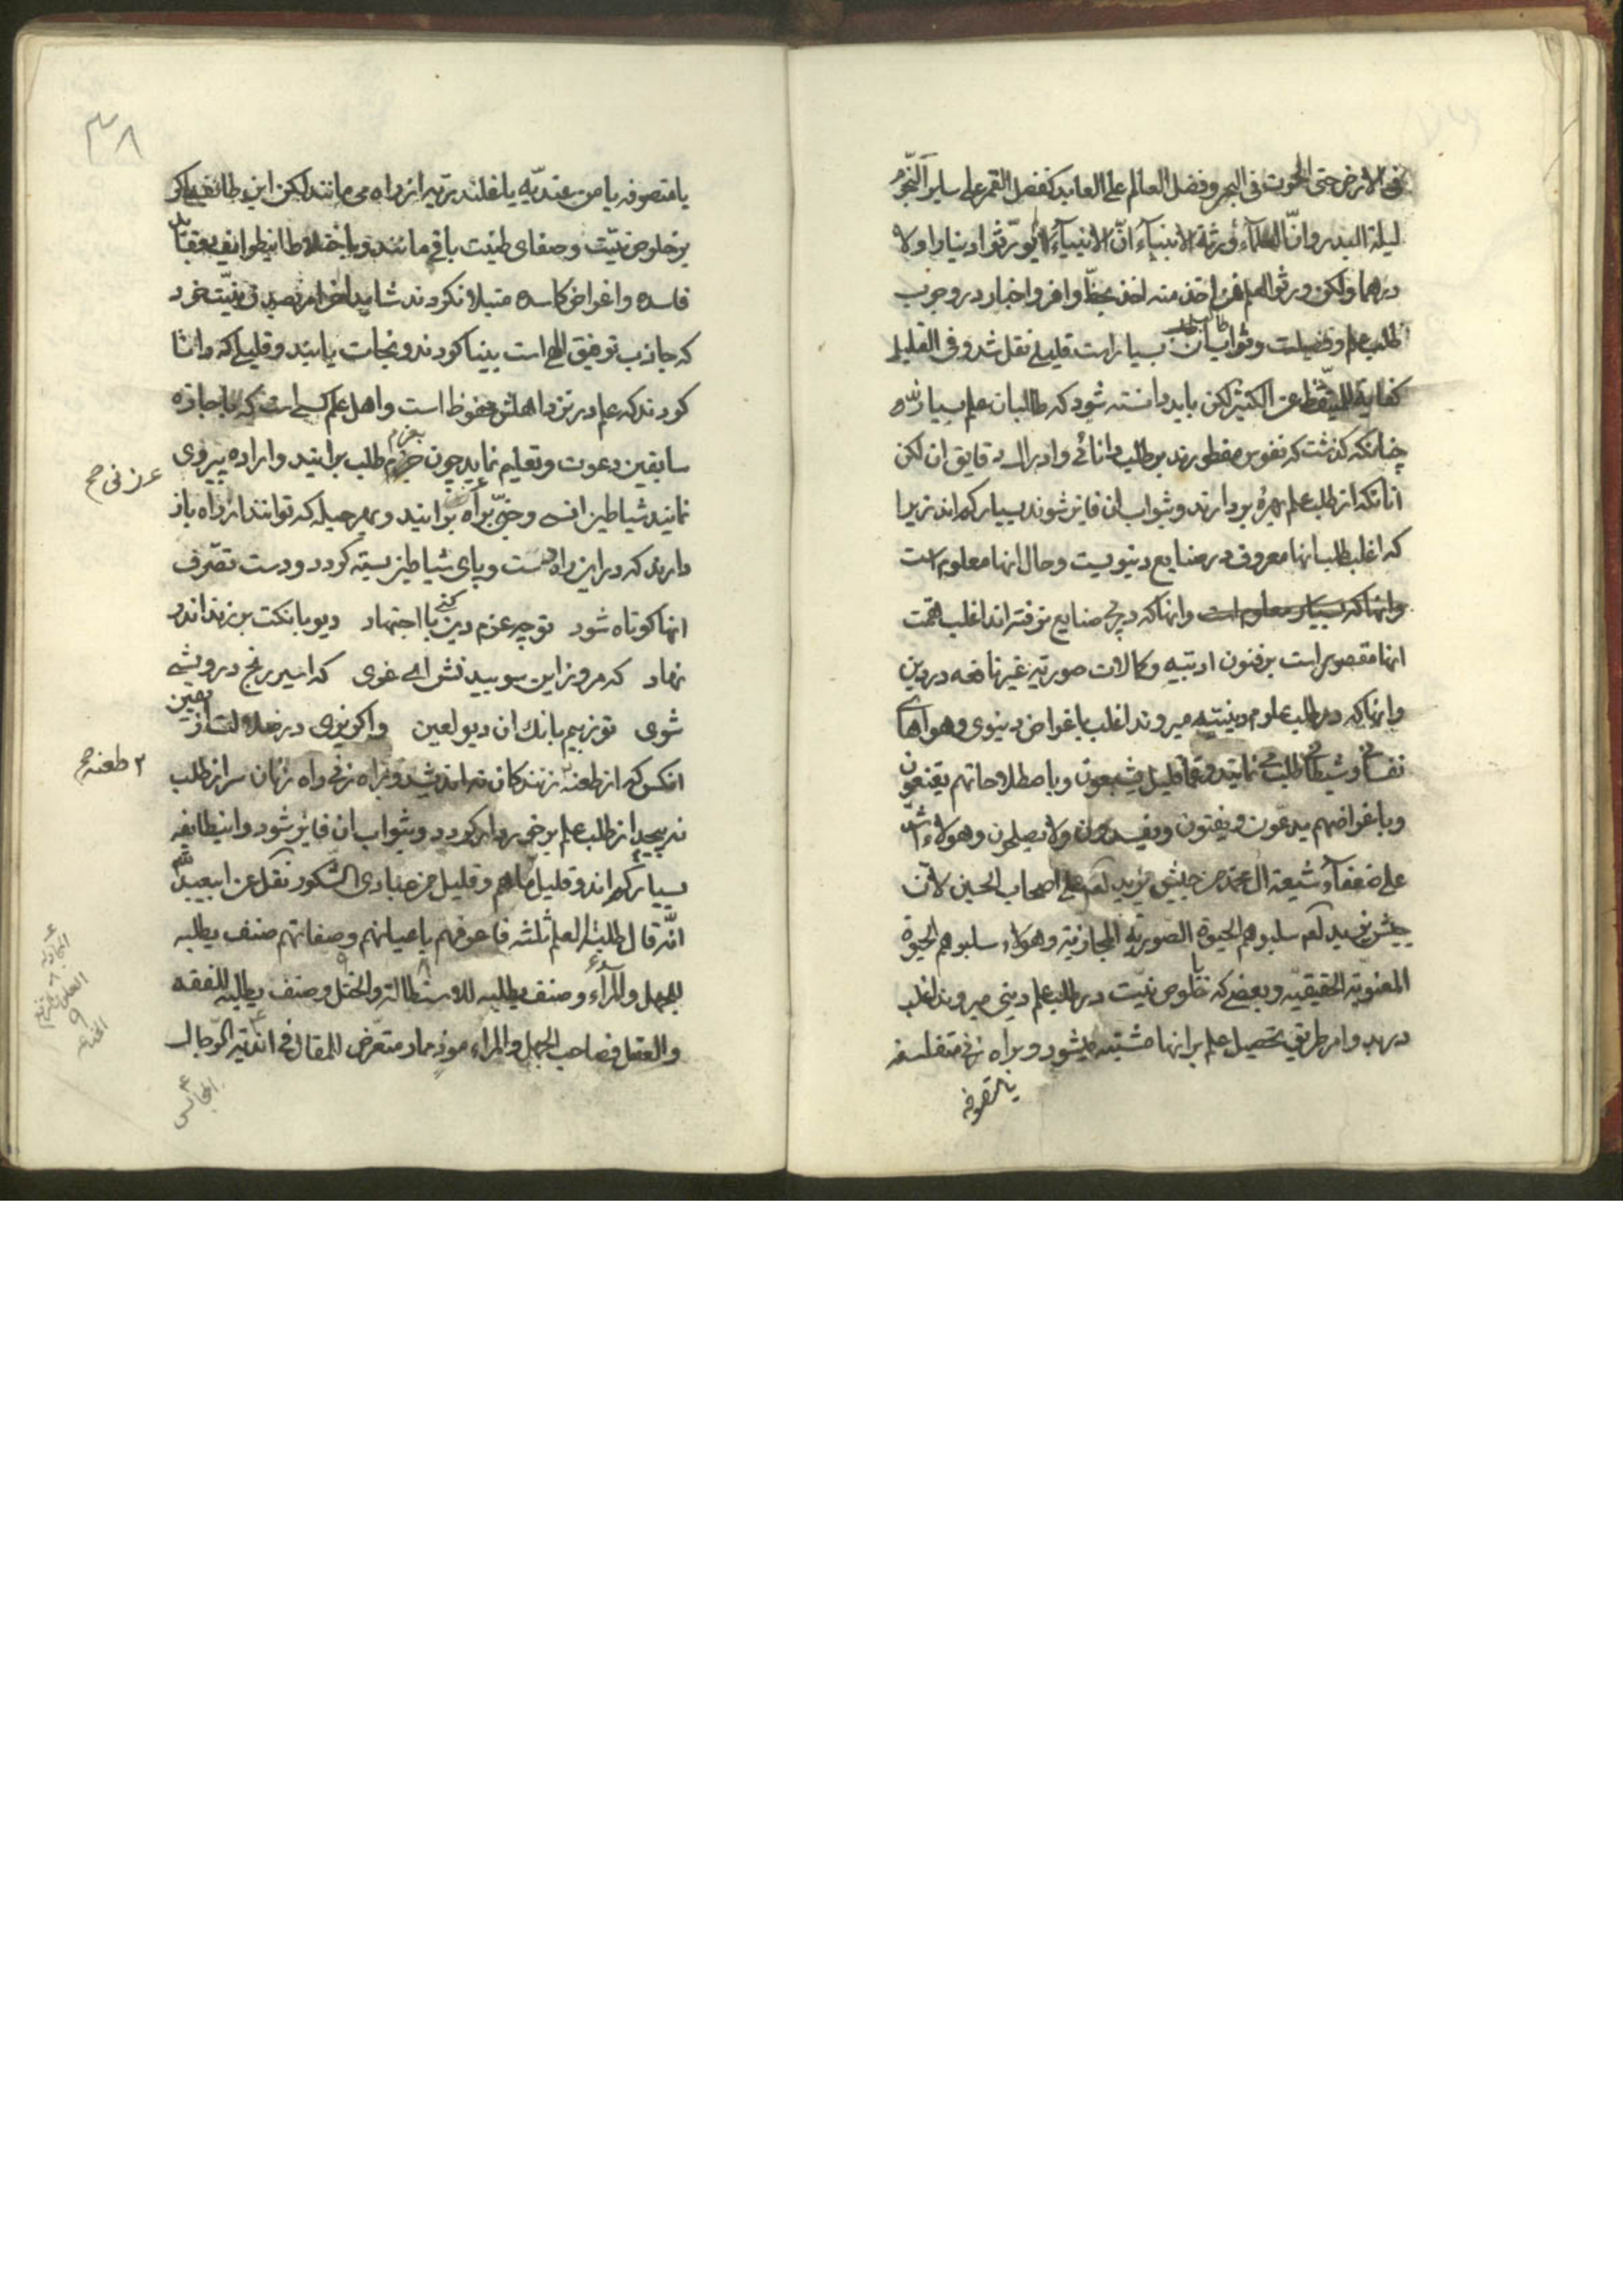 فی الارض حتی الحوت فی البحر و فضل العالم علی العابد کفضل القمر علی سایر النجوم
لیلة البدر و انّ العلمآء ورثة الانبیآء انّ الانبیآء لم یورّثوا دینارا و لا
درهما و لکن ورثوا العلم فمن اخذ منه اخذ بحظّ وافر و اخبار در وجوب
طلب علم و فضیلت و ثواب ان بسیار است قلیلی نقل شد و فی القلیل
کفایة للمتیقّظ عن الکثیر لکن باید دانسته شود که طالبان علم بسیارند
چنانکه کذشت که نفوس مفطورند بر طلب دانائی و ادراک دقایق ان لکن
انانکه از طلب علم بهره بردارند و بثواب ان فایز شوند بسیار کم اند زیرا
که اغلب طلب انها معروف در صنایع دنیویست و حال انها معلوم است
وانها که بسیار معلوم است وانها که در پی صنایع نرفته اند اغلب همّت
انها مقصور است بر فنون ادبیّه و کمالات صوریّه غیر نافعه در دین
و انها که در طلب علوم دینیّه میروند اغلب باغراض دنیوی و هواهای
نفسانی و شیطانی طلب می نمایند و عمّا قلیل یشبعون و باصطلاحاتهم یقنعون
و باغراضهم یدعون و یفتون و یفسدون و لا یصلحون و هولاء اشدّ
علی ضعفآء شیعة ال محمد من جیش یزید لعم علی اصحاب الحسین لانّ
جیش یزید لعم سلبوهم الحیوة الصوریّة المجازیّة و هولاء سلبوهم الحیوة
المعنویّة الحقیقیّه و بعضی که با خلوص نیّت در طلب علم دینی میروند اغلب
در بدو امر طریق تحصیل علم بر انها مشتبه میشود و براه زنی متفلسفه
یا متصوفه
٣٨
یا متصوفه یا من عندیّه یا قلندریّه از راه می مانند لکن این طائفه اکر
بر خلوص نیّت و صفای طینت باقی مانند و باختلاط اینطوایف بعقاید
فاسده و اغراض کاسده مبتلا نکردند شاید اخر امر بصدق نیّت خود
که جاذب توفیق الهی است بینا کردند و نجات یابند و قلیلی که دانا
کردند که علم در نزد اهلش محفوظ است و اهل علم کسی است که باجازه
سابقین دعوت و تعلیم نماید چون بعزم جزم طلب برایند و اراده پیروی
نمایند شیاطین انسی و جنّی براه برایند و بهر حیله که توانند از راه باز
دارند که در این راه دست و پای شیاطین بسته کردد و دست تصرّف
انها کوتاه شود تو چو عزم دین کنی با اجتهاد دیو بانکت برزند اندر
نهاد که مرو زاین سو بیندیش ای غوی که اسیر رنج و درویشی
شوی تو ز بیم بانک ان دیو لعین واکریزی در ضلالت از یقین
انکس که از طعنه زنندکان نه اندیشد و براه زنی راه زنان سر از طلب
نه پیچد از طلب علم برخوردار کردد و بثواب ان فایز شود و اینطایفه
بسیار کم اند و قلیل ما هم و قلیل من عبادی الشکور نقل عن ابیعبد اللّه
انّه قال طلبة العلم ثلثة فاعرفهم باعیانهم و صفاتهم صنف یطلبه
للجهل و المرآء و صنف یطلبه للاستطالة و الختل و صنف یطلبه للفقه
و العقل فصاحب الجهل و المراء موذ ممار متعرّض للمقال فی اندیة الرّجال
٢ طعنه صح